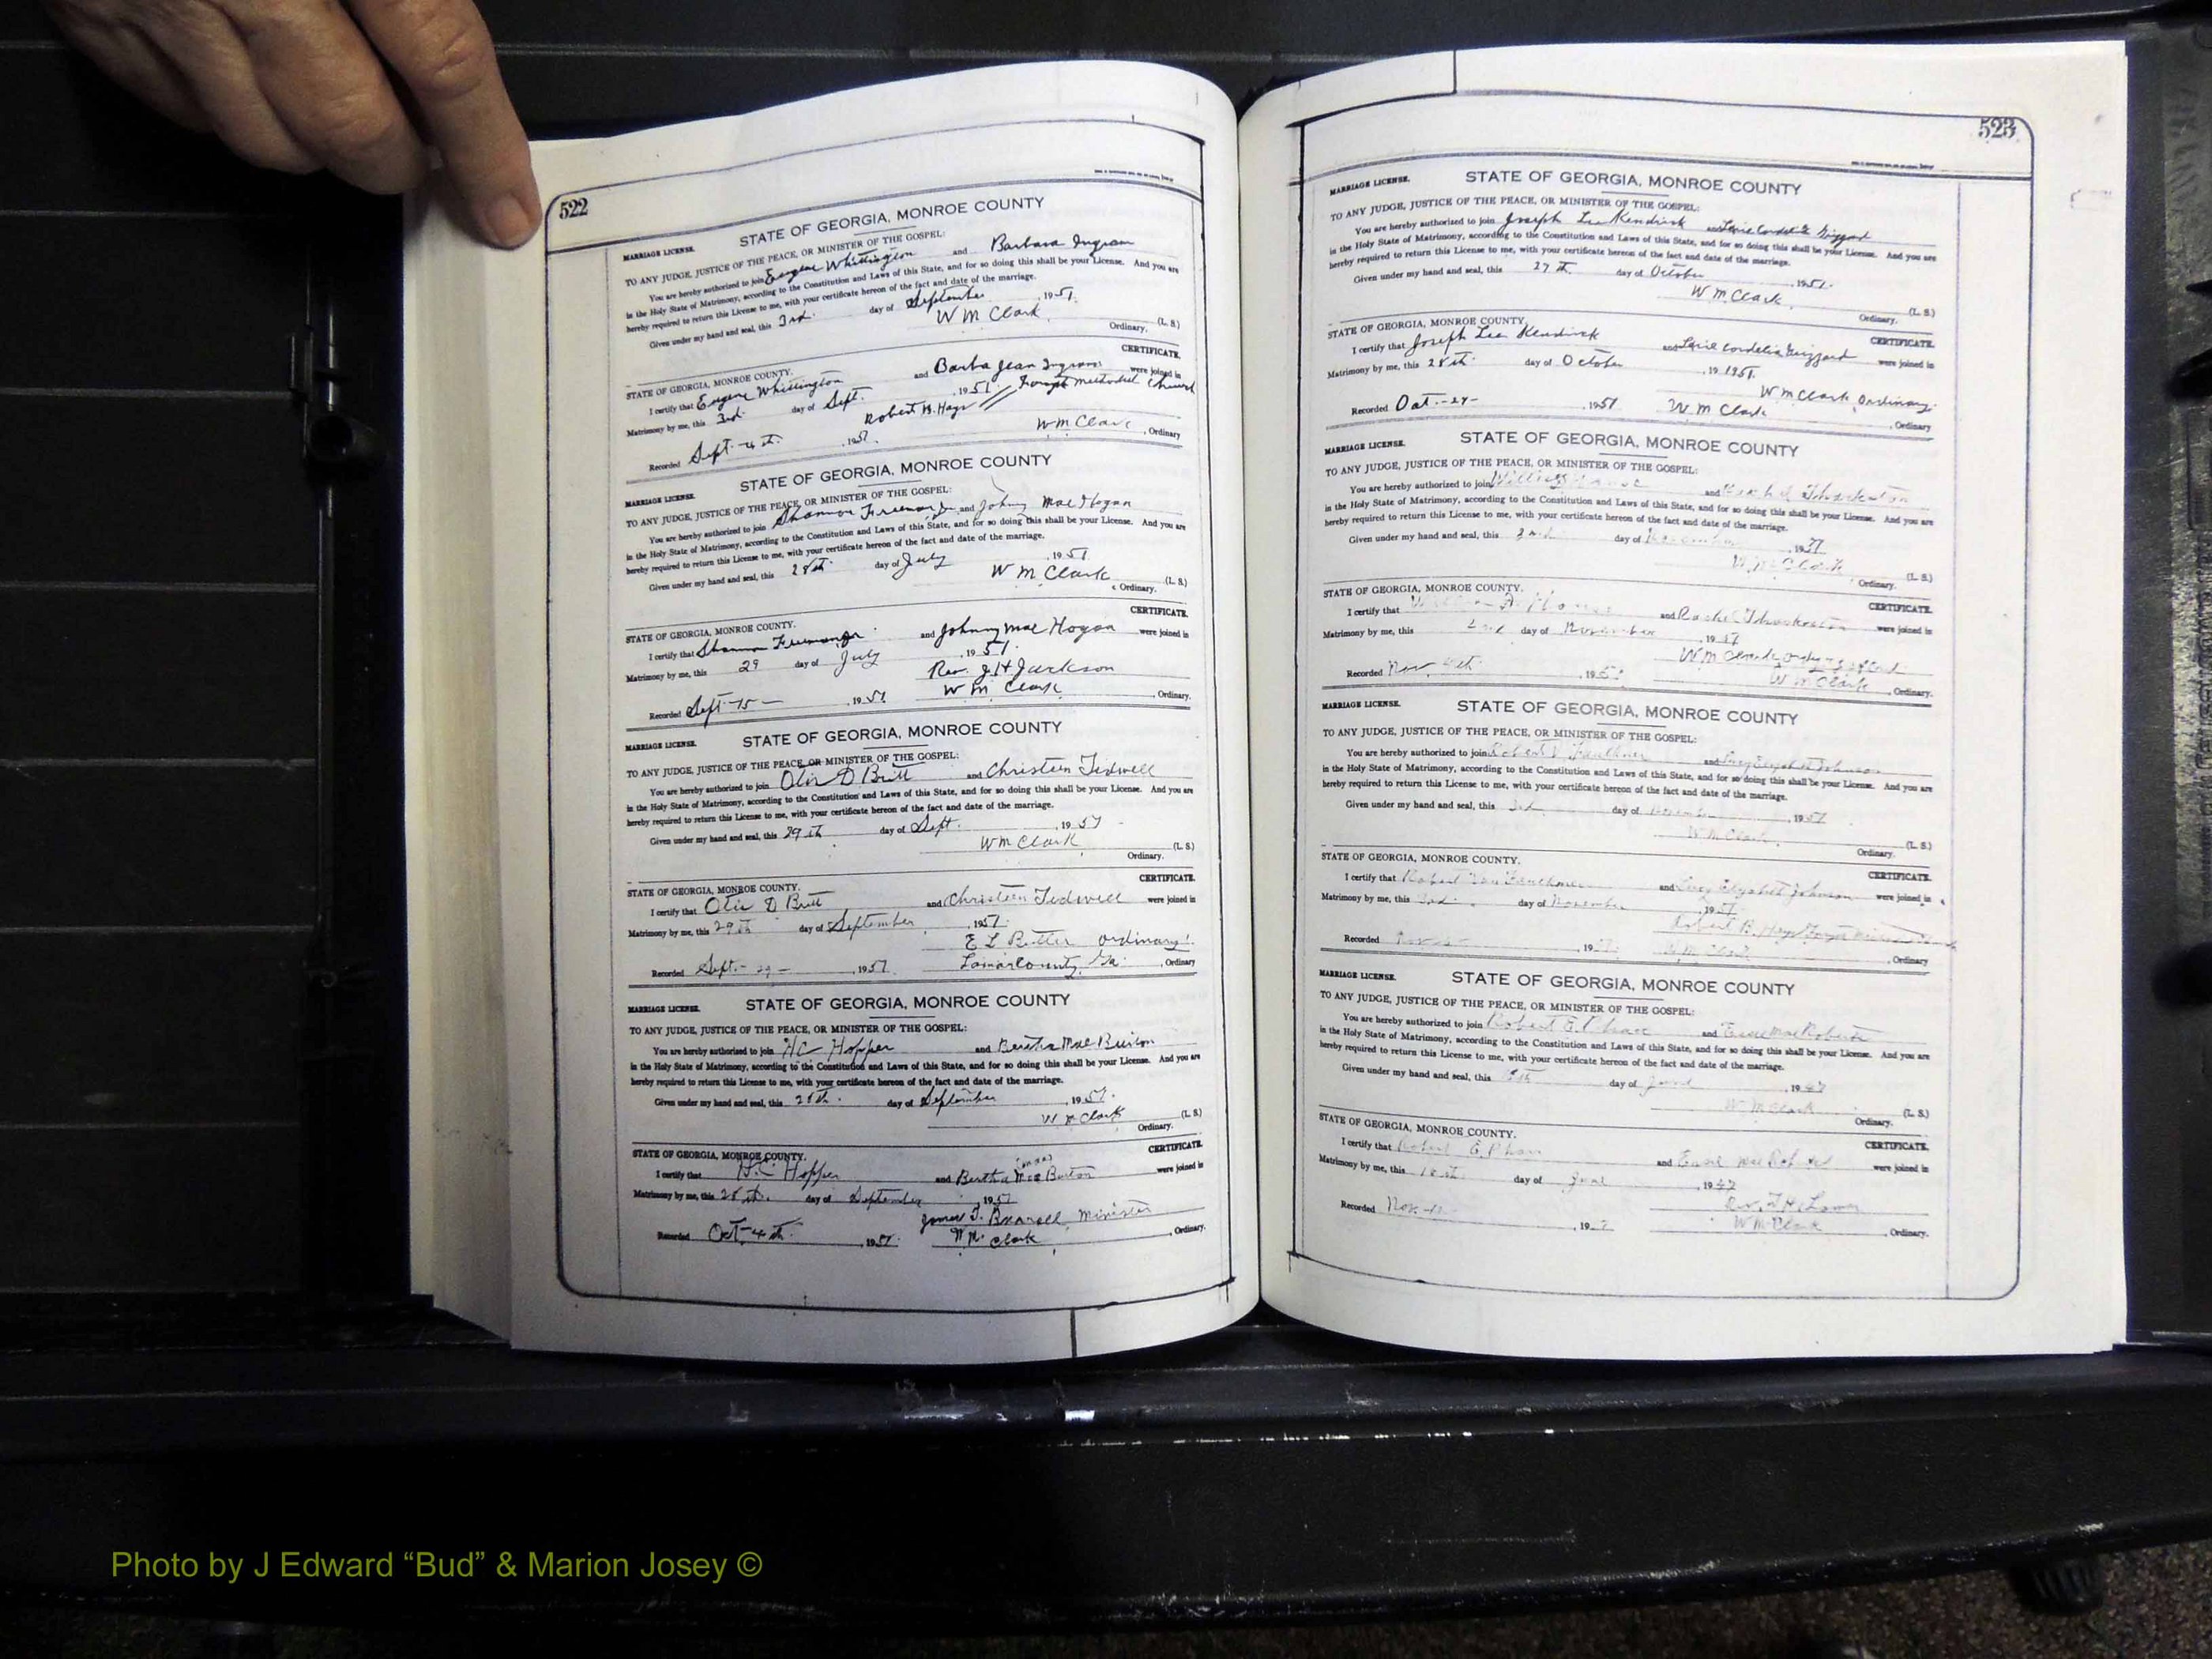 522
MARRIAGE LICENSE. STATE OF GEORGIA, MONROE COUNTY
TO ANY JUDGE, JUSTICE OF THE PEACE, OR MINISTER OF THE GOSPEL:
You are hereby authorized to join Eugene Whittington and Barbara Ingram
in the Holy State of Matrimony, according to the Constitution and Laws of this State, and for so doing this shall be your License. And you are
hereby required to return this License to me, with your certificate hereon of the fact and date of the marriage.
Given under my hand and seal, this 3rd. day of September, 1951.
W M Clark. (L. S.)
Ordinary.
STATE OF GEORGIA, MONROE COUNTY. CERTIFICATE.
I certify that Eugene Whittington and Barba Jean Ingram were joined in
Matrimony by me, this 3rd. day of Sept. 1951 // Forsyth Methodist Church
Robert B. Hays
Recorded Sept-4th. , 1951. W M Clark , Ordinary
MARRIAGE LICENSE. STATE OF GEORGIA, MONROE COUNTY
TO ANY JUDGE, JUSTICE OF THE PEACE, OR MINISTER OF THE GOSPEL:
You are hereby authorized to join Shannon Freeman Jr and Johnny Mae Hogan
in the Holy State of Matrimony, according to the Constitution and Laws of this State, and for so doing this shall be your License. And you are
hereby required to return this License to me, with your certificate hereon of the fact and date of the marriage.
Given under my hand and seal, this 28th. day of July , 1951
W M Clark (L. S.)
Ordinary.
STATE OF GEORGIA, MONROE COUNTY. CERTIFICATE.
I certify that Shannon Freeman Jr. and Johnny Mae Hogan were joined in
Matrimony by me, this 29 day of July , 1951.
Rev. J H Jackson
Recorded Sept-15- , 1951 W M Clark , Ordinary.
MARRIAGE LICENSE. STATE OF GEORGIA, MONROE COUNTY
TO ANY JUDGE, JUSTICE OF THE PEACE, OR MINISTER OF THE GOSPEL:
You are hereby authorized to join Otis D Britt and Christeen Tidwell
in the Holy State of Matrimony, according to the Constitution and Laws of this State, and for so doing this shall be your License. And you are
hereby required to return this License to me, with your certificate hereon of the fact and date of the marriage.
Given under my hand and seal, this 29th day of Sept. , 1951
W M Clark (L. S.)
Ordinary.
STATE OF GEORGIA, MONROE COUNTY. CERTIFICATE.
I certify that Otis D Britt and Christeen Tidwell were joined in
Matrimony by me, this 29th day of September , 1951.
E L Butler ordinary
Recorded Sept-29- , 1951 Lamar County, Ga. , Ordinary
MARRIAGE LICENSE. STATE OF GEORGIA, MONROE COUNTY
TO ANY JUDGE, JUSTICE OF THE PEACE, OR MINISTER OF THE GOSPEL:
You are hereby authorized to join HC Hopper and Bertha Mae Burton
in the Holy State of Matrimony, according to the Constitution and Laws of this State, and for so doing this shall be your License. And you are
hereby required to return this License to me, with your certificate hereon of the fact and date of the marriage.
Given under my hand and seal, this 28th. day of September , 1951.
W M Clark (L. S.)
Ordinary.
STATE OF GEORGIA, MONROE COUNTY. CERTIFICATE.
I certify that H.C Hopper and Bertha Mae Burton were joined in
Matrimony by me, this 28th. day of September , 1951
James T. Minister
Recorded Oct-4th. , 1951. W M Clark , Ordinary.
523
MARRIAGE LICENSE. STATE OF GEORGIA, MONROE COUNTY
TO ANY JUDGE, JUSTICE OF THE PEACE, OR MINISTER OF THE GOSPEL:
You are hereby authorized to join Joseph Lee Kendrick and Cordelia Grizzard
in the Holy State of Matrimony, according to the Constitution and Laws of this State, and for so doing this shall be your License. And you are
hereby required to return this License to me, with your certificate hereon of the fact and date of the marriage.
Given under my hand and seal, this 27th day of October , 1951.
W M Clark. (L. S.)
Ordinary.
STATE OF GEORGIA, MONROE COUNTY. CERTIFICATE.
I certify that Joseph Lee Kendrick and Cordelia Grizzard were joined in
Matrimony by me, this 28th. day of October , 19 1951.
W M Clark Ordinary.
Recorded Oct-29- , 1951 W M Clark , Ordinary
MARRIAGE LICENSE. STATE OF GEORGIA, MONROE COUNTY
TO ANY JUDGE, JUSTICE OF THE PEACE, OR MINISTER OF THE GOSPEL:
You are hereby authorized to join and Rachel Thaxton
in the Holy State of Matrimony, according to the Constitution and Laws of this State, and for so doing this shall be your License. And you are
hereby required to return this License to me, with your certificate hereon of the fact and date of the marriage.
Given under my hand and seal, this 2nd day of , 19
W M Clark (L. S.)
Ordinary.
STATE OF GEORGIA, MONROE COUNTY. CERTIFICATE.
I certify that and Rachel were joined in
Matrimony by me, this 2nd day of November , 1951
W M Clark
Recorded Nov 4th. , 195 W M Clark , Ordinary.
MARRIAGE LICENSE. STATE OF GEORGIA, MONROE COUNTY
TO ANY JUDGE, JUSTICE OF THE PEACE, OR MINISTER OF THE GOSPEL:
You are hereby authorized to join Robert V Faulkner and Lucy Elizabet Johnson
in the Holy State of Matrimony, according to the Constitution and Laws of this State, and for so doing this shall be your License. And you are
hereby required to return this License to me, with your certificate hereon of the fact and date of the marriage.
Given under my hand and seal, this 3rd day of November , 1951
W M Clark. (L. S.)
Ordinary.
STATE OF GEORGIA, MONROE COUNTY. CERTIFICATE.
I certify that Robert Van Faulkner and Lucy Elyzabet Johnson were joined in
Matrimony by me, this 3rd. day of November , 1951
Robert B. Hays Forsyth
Recorded Nov , 19 W M Clark , Ordinary
MARRIAGE LICENSE. STATE OF GEORGIA, MONROE COUNTY
TO ANY JUDGE, JUSTICE OF THE PEACE, OR MINISTER OF THE GOSPEL:
You are hereby authorized to join Robert E. and Essie Mae Roberts
in the Holy State of Matrimony, according to the Constitution and Laws of this State, and for so doing this shall be your License. And you are
hereby required to return this License to me, with your certificate hereon of the fact and date of the marriage.
Given under my hand and seal, this day of June , 1947
W M Clark (L. S.)
Ordinary.
STATE OF GEORGIA, MONROE COUNTY. CERTIFICATE.
I certify that Robert E. and Essie Mae were joined in
Matrimony by me, this 18th. day of June , 1947
Rev.
Recorded Nov. , 19 W M Clark , Ordinary.
Photo by J Edward “Bud” & Marion Josey ©